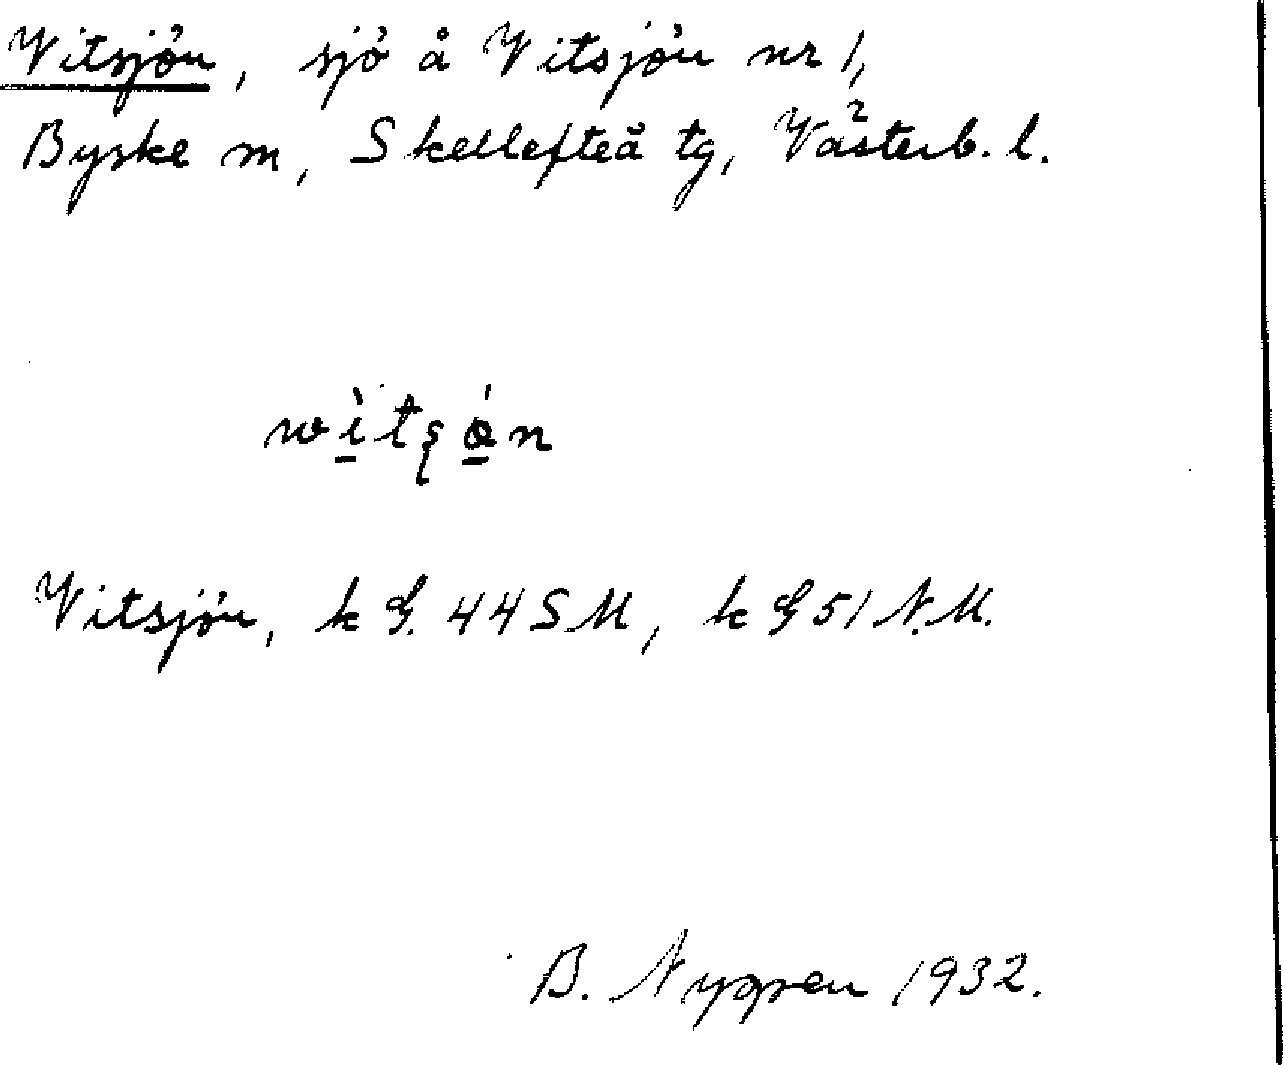 Vitsjön, sjö å Vitsjön nr 1,
Byske m, Skellefteå tg, Västerb. l.
Vitsjön, k G. 44 S M, k G 51 N.M.
B. Nygren 1932.